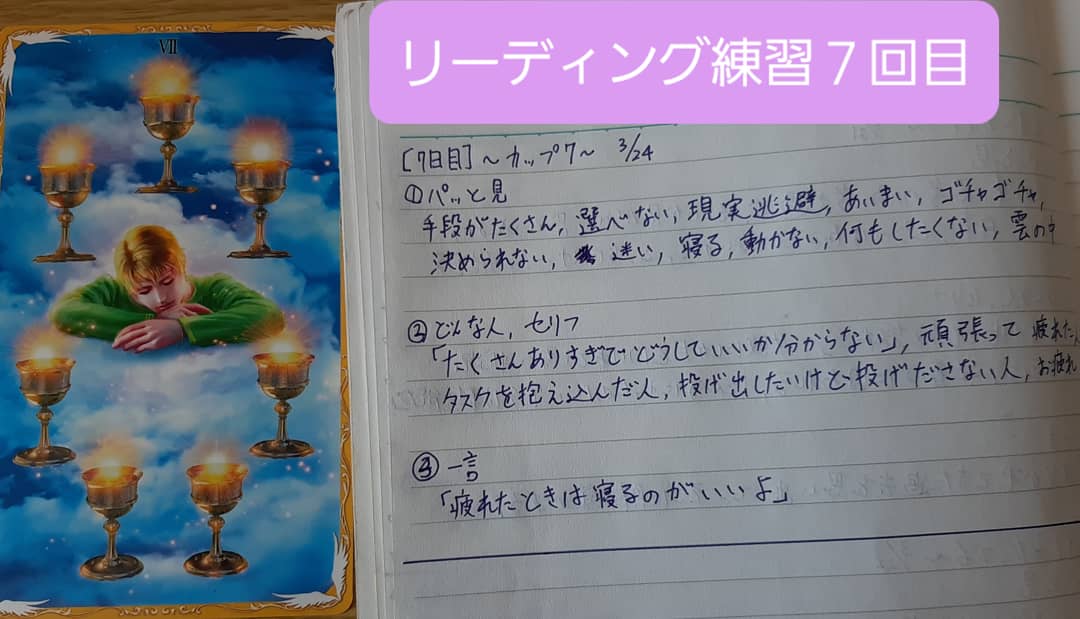 VII
リーディング練習7回目
[7日目]〜カップ7〜 3/24
①パッと見
手段がたくさん,選べない,現実逃避,あいまい,ゴチャゴチャ,
決められない,迷い,寝る,動かない,何もしたくない,雲の中
②どんな人,セリフ
「たくさんありすぎてどうしていいか分からない」,頑張って疲れた人
タスクを抱え込んだ人,投げ出したいけど投げださない人,お疲れ
③一言
「疲れたときは寝るのがいいよ」